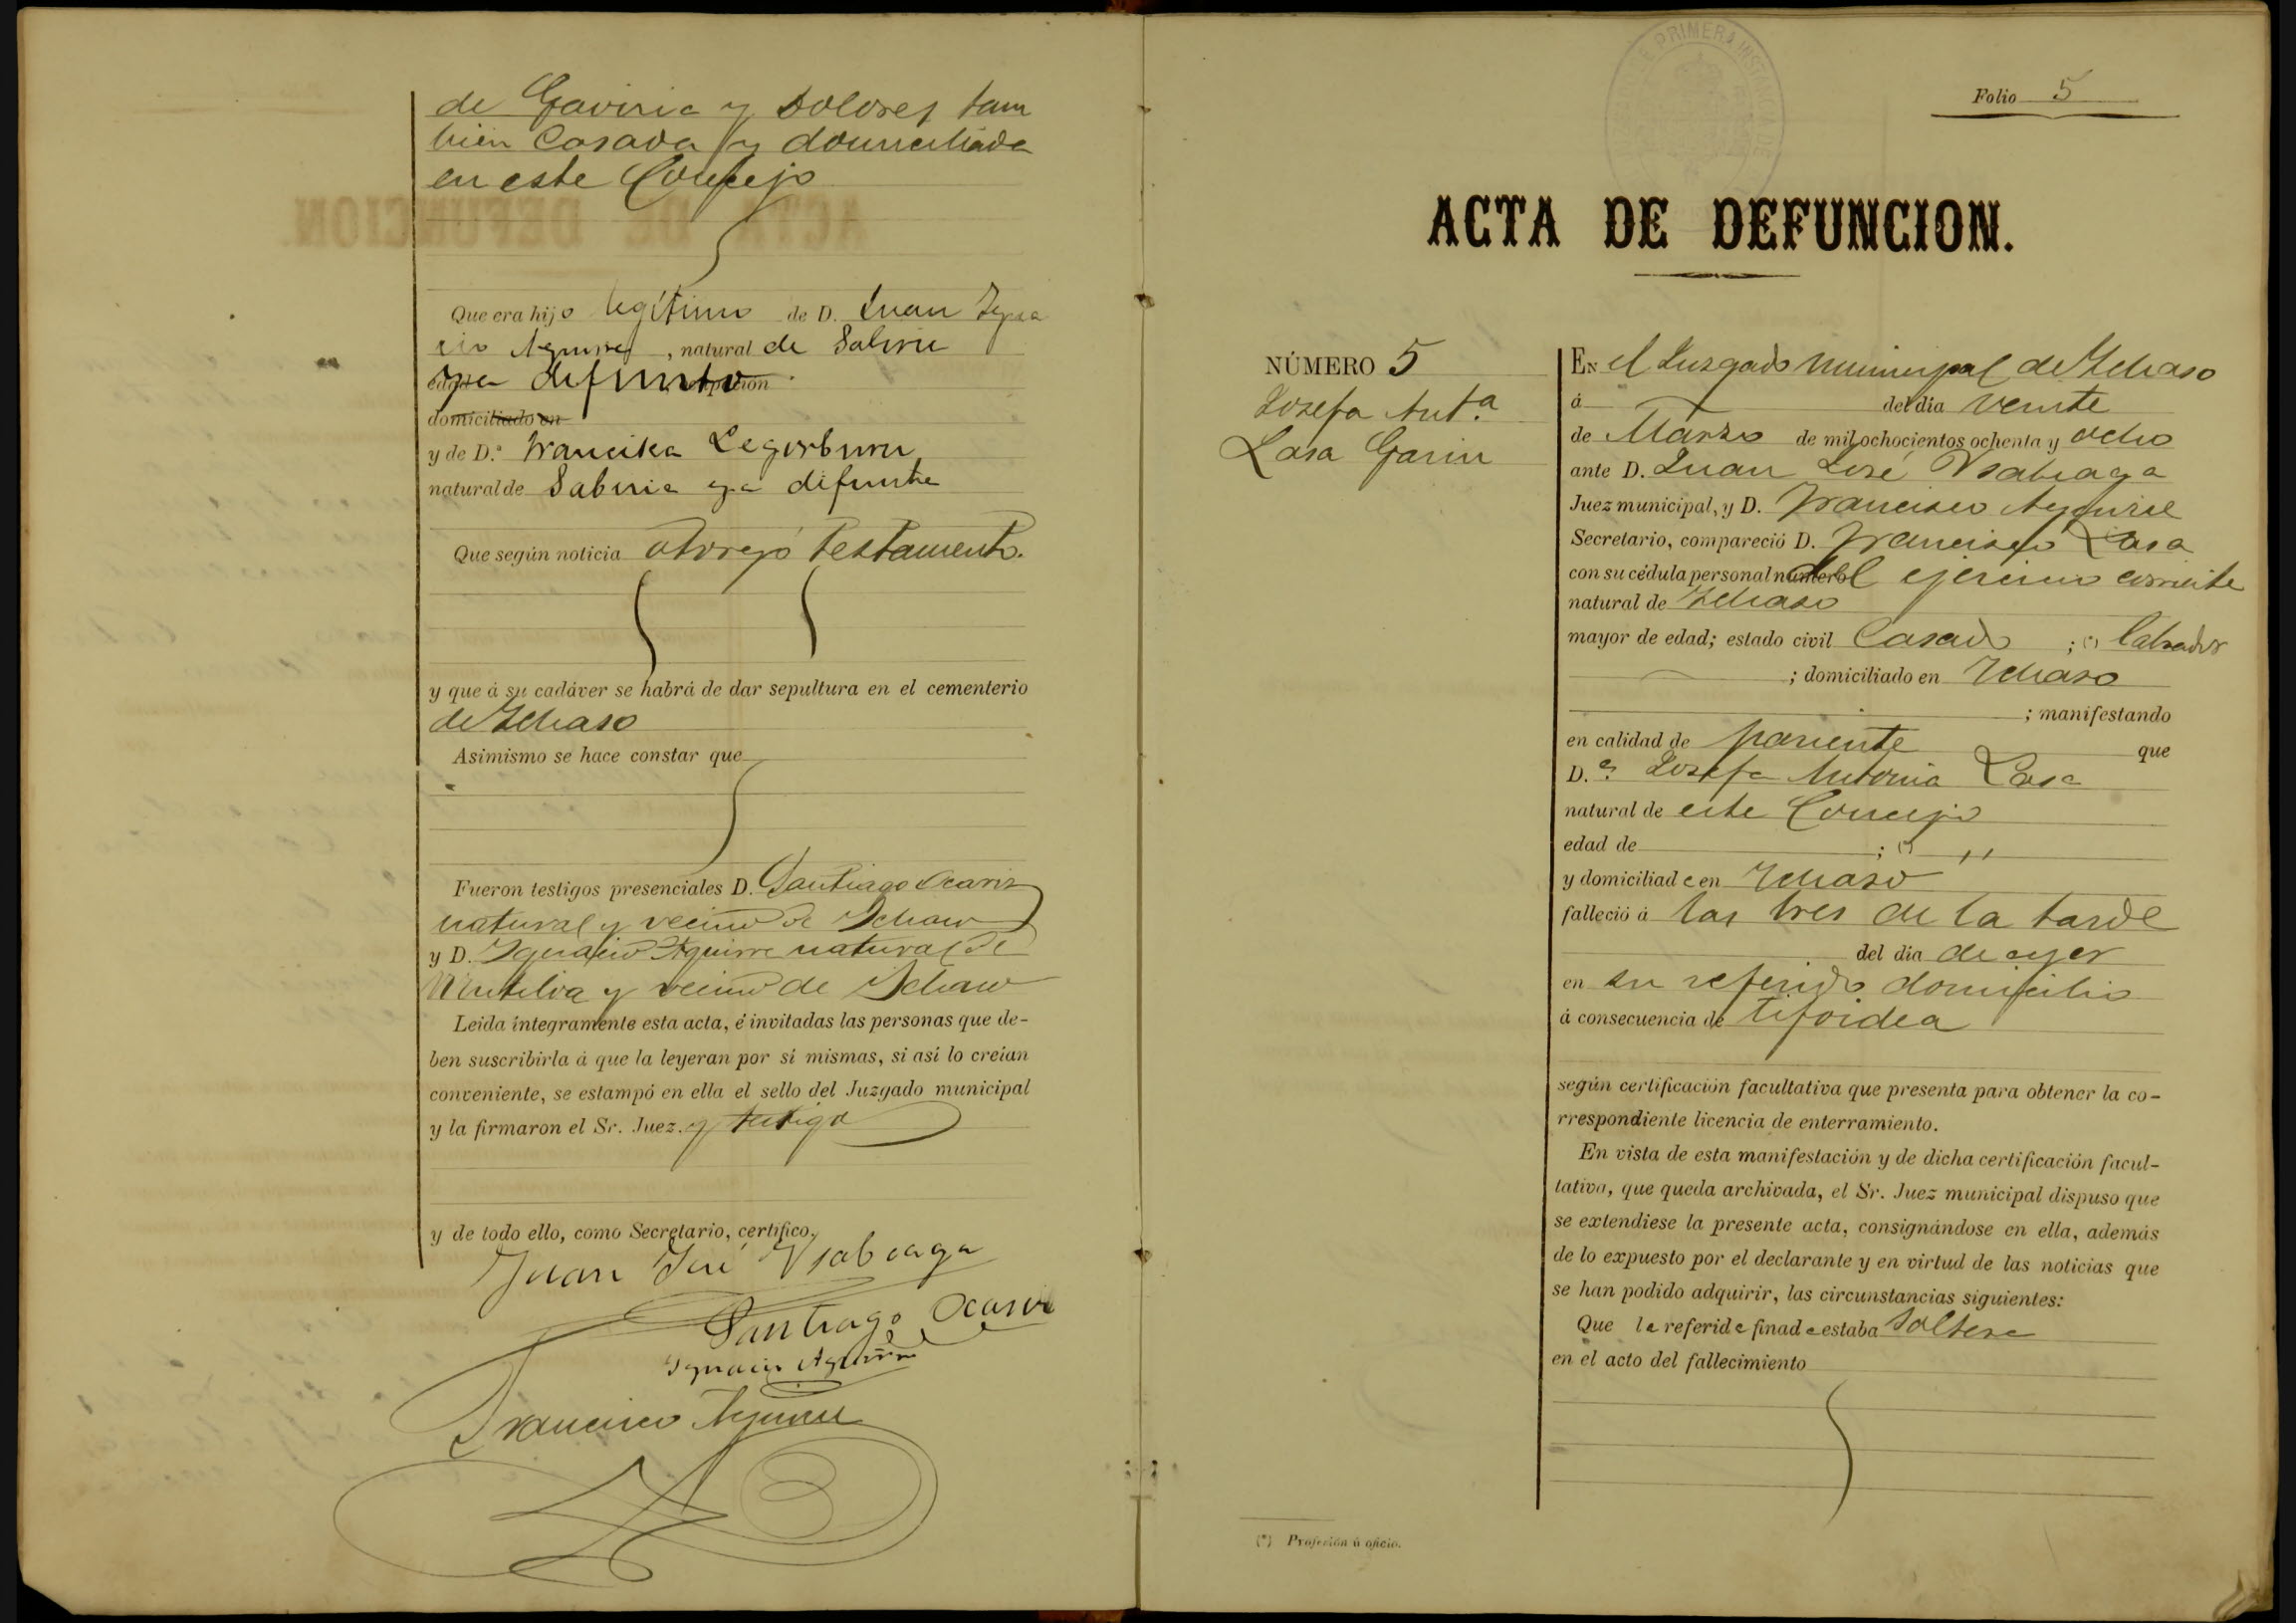 de Gaviria y Dolores tam
bien Casada y domiciliada
en este Concejo
Que era hijo legítimo de D. Juan Igna
cio Aguirre, natural de
ya difunto
domiciliado en
y de D.ª Francisca Legorburu
natural de ya difunta
Que según noticia otorgó testamento.
y que á su cadáver se habrá de dar sepultura en el cementerio
de Ichaso
Asimismo se hace constar que
Fueron testigos presenciales D. Santiago Ocariz
natural y vecino de Ichaso
y D. Ignacio Aguirre natural de
Mutiloa y vecino de Ichaso
Leida íntegramente esta acta, é invitadas las personas que de-
ben suscribirla á que la leyeran por sí mismas, si así lo creían
conveniente, se estampó en ella el sello del Juzgado municipal
y la firmaron el Sr. Juez. y testigo
y de todo ello, como Secretario, certifico.
Juan José Ysabiaga
Santiago Ocariz
Ignacio Aguirre
Francisco Aguirre
Folio 5
ACTA DE DEFUNCION.
NÚMERO 5
Josefa Ant.ª
Lasa Garin
EN el Juzgado municipal de Ichaso
á del dia veinte
de Marzo de mil ochocientos ochenta y ocho
ante D. Juan José Ysabiaga
Juez municipal, y D. Francisco Aguirre
Secretario, compareció D. Francisco Lasa
con su cédula personal número del ejercicio corriente
natural de Ichaso
mayor de edad; estado civil Casado ; (*) labrador
; domiciliado en Ichaso
; manifestando
en calidad de pariente que
D.ª Josefa Antonia Lasa
natural de este Concejo
edad de ; (*) "
y domiciliada en Ichaso
falleció á las tres de la tarde
del dia de ayer
en su referido domicilio
á consecuencia de tifoidea
según certificación facultativa que presenta para obtener la co-
rrespondiente licencia de enterramiento.
En vista de esta manifestación y de dicha certificación facul-
tativa, que queda archivada, el Sr. Juez municipal dispuso que
se extendiese la presente acta, consignándose en ella, además
de lo expuesto por el declarante y en virtud de las noticias que
se han podido adquirir, las circunstancias siguientes:
Que la referida finada estaba Soltera
en el acto del fallecimiento
(*) Profesión ú oficio.